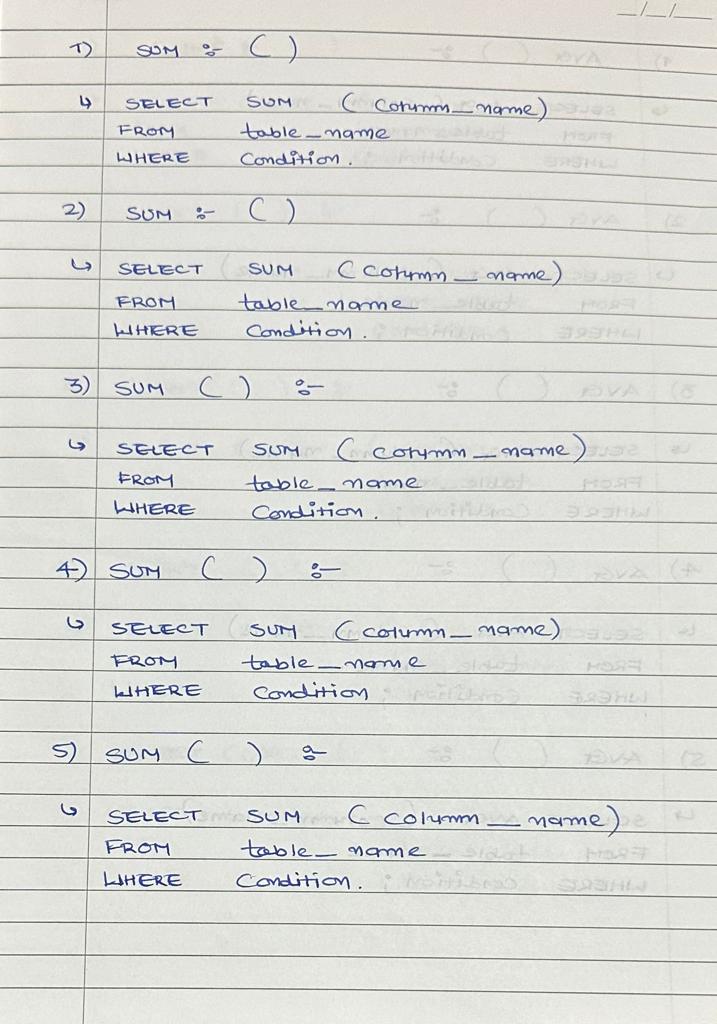 _/_/__
1) SUM :- ( )
↳ SELECT SUM ( column_name)
FROM table_name
WHERE Condition.
2) SUM :- ( )
↳ SELECT SUM ( column_name)
FROM table_name
WHERE Condition.
3) SUM ( ) :-
↳ SELECT SUM ( column_name)
FROM table_name
WHERE Condition.
4) SUM ( ) :-
↳ SELECT SUM (column_name)
FROM table_name
WHERE Condition
5) SUM ( ) :-
↳ SELECT SUM ( column_name)
FROM table_name
WHERE Condition.